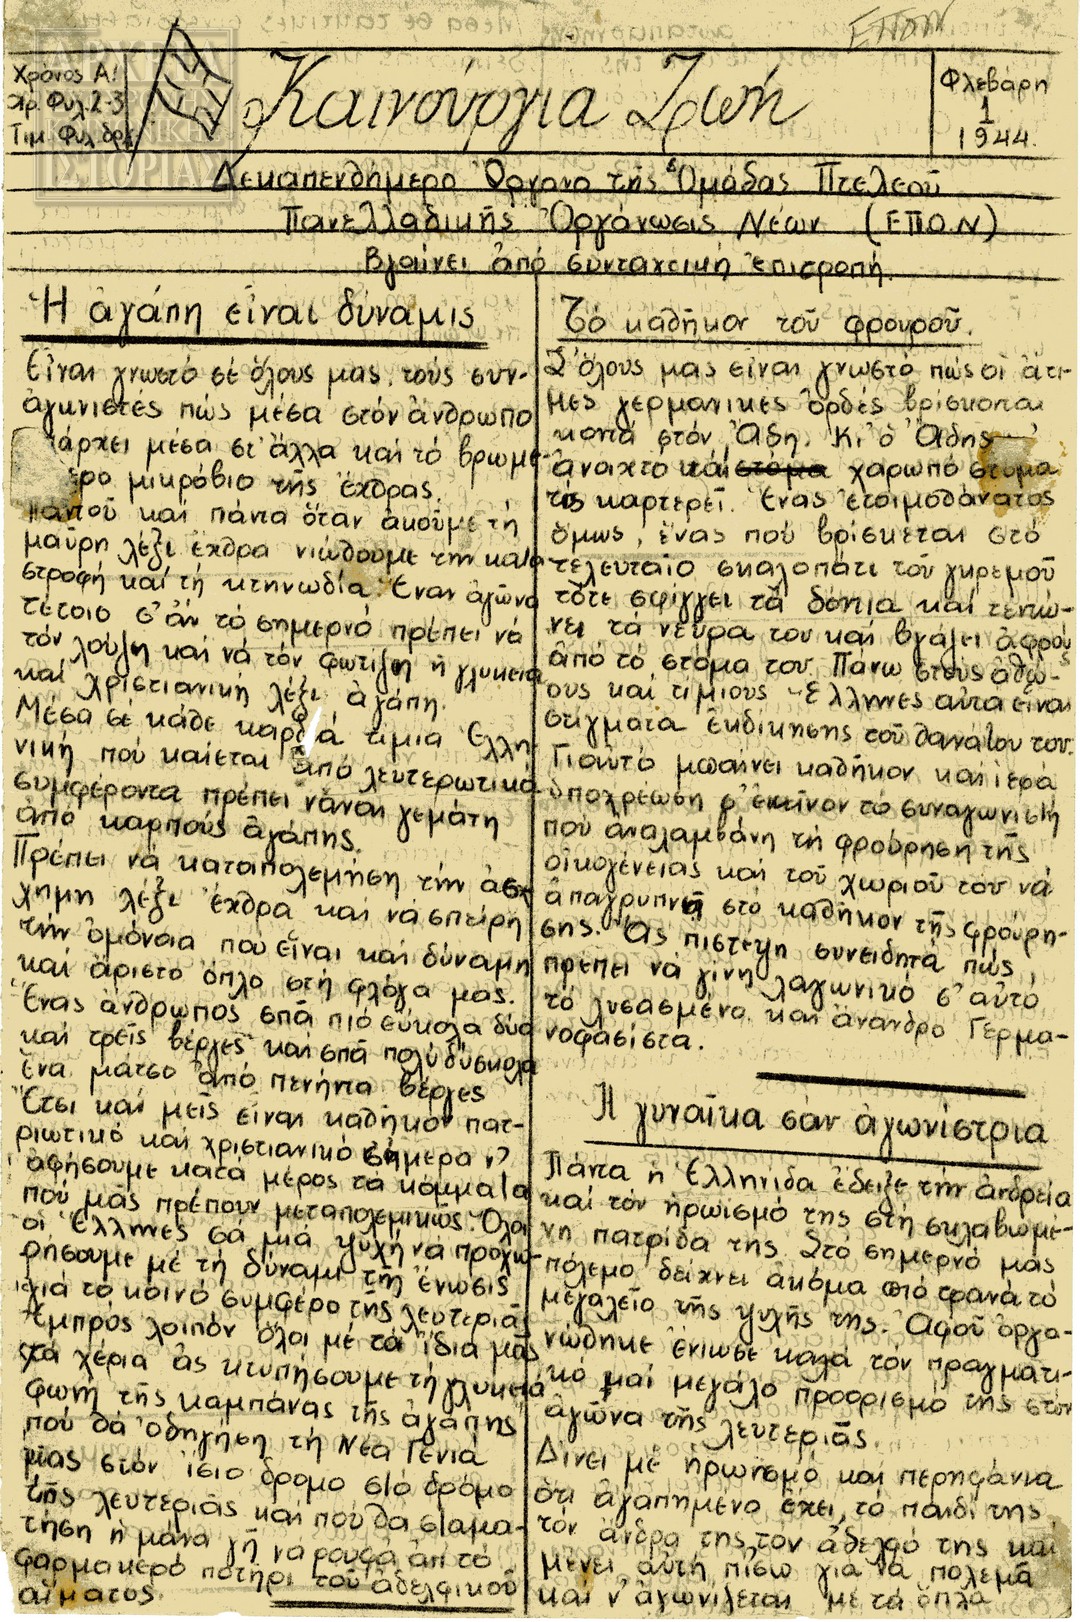 ΕΠΟΝ
ΑΡΧΕΙΑ
ΙΣΤΟΡΙΑΣ
Χρόνος Α!
Ἀρ. Φυλ. 2-3
Τιμ. Φυλ. δρχ
Καινούργια Ζωή
Φλεβάρη
1
1944.
Δεκαπενθήμερο Ὄργανο τῆς Ὁμάδας Πτελεοῦ
Πανελλαδικῆς Ὀργάνωσις Νέων (ΕΠΟΝ)
Βγαίνει ἀπό συνταχτική ἐπιτροπή.
Ἡ ἀγάπη εἶναι δύναμις
Εἶναι γνωστό σέ ὅλους μας, τούς συν-
άγωνιστές πώς μέσα στόν ἀνθρωπο
άρχει μέσα στ' ἄλλα καί τό βρωμε-
ερο μικρόβιο τῆς ἔχθρας.
Παντοῦ καί πάντα ὅταν ἀκοῦμε τή
μαύρη λέξι ἔχθρα νιώθουμε τήν κατα
στροφή καί τή κτηνωδία. Ἕναν ἀγῶνα
τέτοιο σ' ἄν τό σημερνό πρέπει νά
τόν λούζη καί νά τόν φωτίζη ἡ γλυκειά
καί χριστιανική λέξι ἀγάπη.
Μέσα σέ κάθε καρδιά τίμια Ἑλλη-
νική πού καίεται ἀπό λευτερωτικά
συμφέροντα πρέπει νἄναι γεμάτη
ἀπό καρπούς ἀγάπης.
Πρέπει νά καταπολεμήση τήν ἀσ
χημη λέξι ἔχθρα καί νά σπείρη
τήν ὁμόνοια που εἶναι καί δύναμη
καί ἄριστο ὅπλο στή φλόγα μας.
Ἕνας ἄνθρωπος σπᾶ πιό εὔκολα δύο
καί τρεῖς βέργες καί σπᾶ πολύ δύσκολα
ἕνα μάτσο ἀπό πενήντα βέργες
Ἔτσι καί μεῖς εἶναι καθῆκον πατ-
ριωτικό καί χριστιανικό σήμερα ν'
ἀφήσουμε κατά μέρος τά κόμματα
πού μᾶς πρέπουν μεταπολεμικῶς. Ὅλοι
οἱ Ἕλληνες σά μιά ψυχή νά προχω-
ρήσουμε μέ τή δύναμι τῆς ἕνωσις
γιά τό κοινό συμφέρο τῆς λευτεριᾶς
Ἐμπρός λοιπόν ὅλοι μέ τά ἴδια μᾶς
τά χέρια ἄς κτυπήσουμε τή γλυκειά
φωνή τῆς καμπάνας τῆς ἀγάπης
πού θά ὁδηγήση τή Νέα Γενιά
μας στόν ἴσιο δρόμο στό δρόμο
τῆς λευτεριᾶς καί πού θά σταμα-
τήση ἡ μάνα γῆ νά ρουφᾶ ἀπ τό
φαρμακερό ποτήρι τοῦ ἀδελφικοῦ
αἵματος.
Τό καθῆκον τοῦ φρουροῦ.
Σ' ὅλους μας εἶναι γνωστό πώς οἱ ἄτι-
μες γερμανικές ὀρδές βρίσκονται
κοντά στόν Ἄδη. Κι' ὁ Ἄδης
ἀνοιχτό καί στόμα χαρωπό στόμα
τίς καρτερεῖ. Ἕνας ἑτοιμοθάνατος
ὅμως, ἕνας πού βρίσκεται στό
τελευταῖο σκαλοπάτι τοῦ γκρεμοῦ
τότε σφίγγει τά δόντια καί τεντώ-
νει τά νεῦρα του καί βγάζει ἀφρούς
ἀπό τό στόμα του. Πάνω στούς ἀθώ-
ους καί τίμιους Ἕλληνες αὐτά εἶναι
στίγματα ἐκδίκησης τοῦ θανάτου του.
Γιαυτό μπαίνει καθῆκον καί ἱερά
ὑποχρέωση σ' ἐκεῖνον τό συναγωνιστή
πού ἀναλαμβάνη τή φρούρηση τῆς
οἰκογένειας καί τοῦ χωριοῦ του νά
ἀπαγρυπνᾶ στό καθῆκον τῆς φρούρη-
σης. Ἄς πιστέψη συνειδητά πώς
πρέπει νά γίνη λαγωνικό σ' αὐτό
τό λυσασμένο καί ἄνανδρο Γερμα-
νοφασίστα.
Ἡ γυναῖκα σάν ἀγωνίστρια
Πάντα ἡ Ἑλληνίδα ἔδειξε τήν ἀνδρεία
καί τόν ἡρωισμό της στή σκλαβωμέ-
νη πατρίδα της. Στό σημερνό μας
πόλεμο δείχνει ἀκόμα πιό τρανά τό
μεγαλεῖο τῆς ψυχῆς της. Ἀφοῦ ὀργα-
νώθηκε ἔνιωσε καλά τόν πραγματι-
κό καί μεγάλο προορισμό της στόν
ἀγῶνα τῆς λευτεριᾶς.
Δίνει μέ ἡρωισμό καί περηφάνια
ὅτι ἀγαπημένο ἔχει, τό παιδί της
τόν ἄνδρα της, τόν ἀδελφό της καί
μένει αὐτή πίσω γιά νά πολεμᾶ
καί ν' ἀγωνίζεται μέ τά ὅπλα